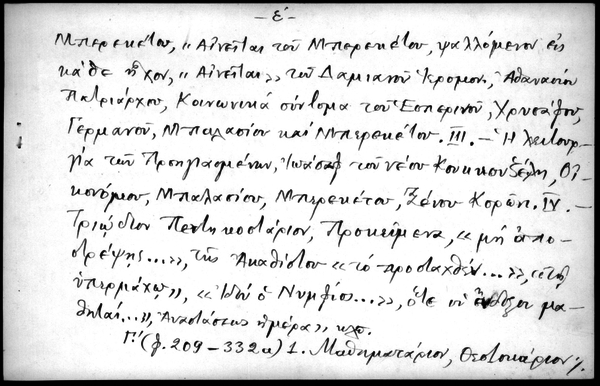 –έ–
Μπερεκέτου, "Αἰνεῖται τοῦ Μπερεκέτου, ψαλλόμενον εἰς
κάθε ἦχον, "Αἰνεῖται" τοῦ Δαμιανοῦ Ἱερομον, Ἀθανασίου
Πατριάρχου, Κοινωνικά σύντομα τοῦ Ἑσπερινοῦ, Χρυσάφου,
Γερμανοῦ, Μπαλασίου καί Μπερεκέτου. III. – Ἡ λειτουρ-
γία τῶν Προηγιασμένων, Ἰωάσαφ τοῦ νέου Κουκκουζέλη, Οἰ-
κονόμου, Μπαλασίου, Μπερεκέτου, Ξένου Κορώνη. IV. –
Τριῴδιον Πεντηκοστάριον, Προκείμενα, "μή ἀπο-
στρέψῃς...», τῆς Ἀκαθίστου «τό προσταχθέν...», «τῇ
ὑπερμάχῳ», «Ἰδού ὁ Νυμφίος...», ὅτε οἱ ἔνδοξοι μα-
θηταί...», Ἀναστάσεως ἡμέρα» κλπ.
Γ.' (φ. 209 – 332α) 1. Μαθηματάριον, Θεοτοκάριον ./.